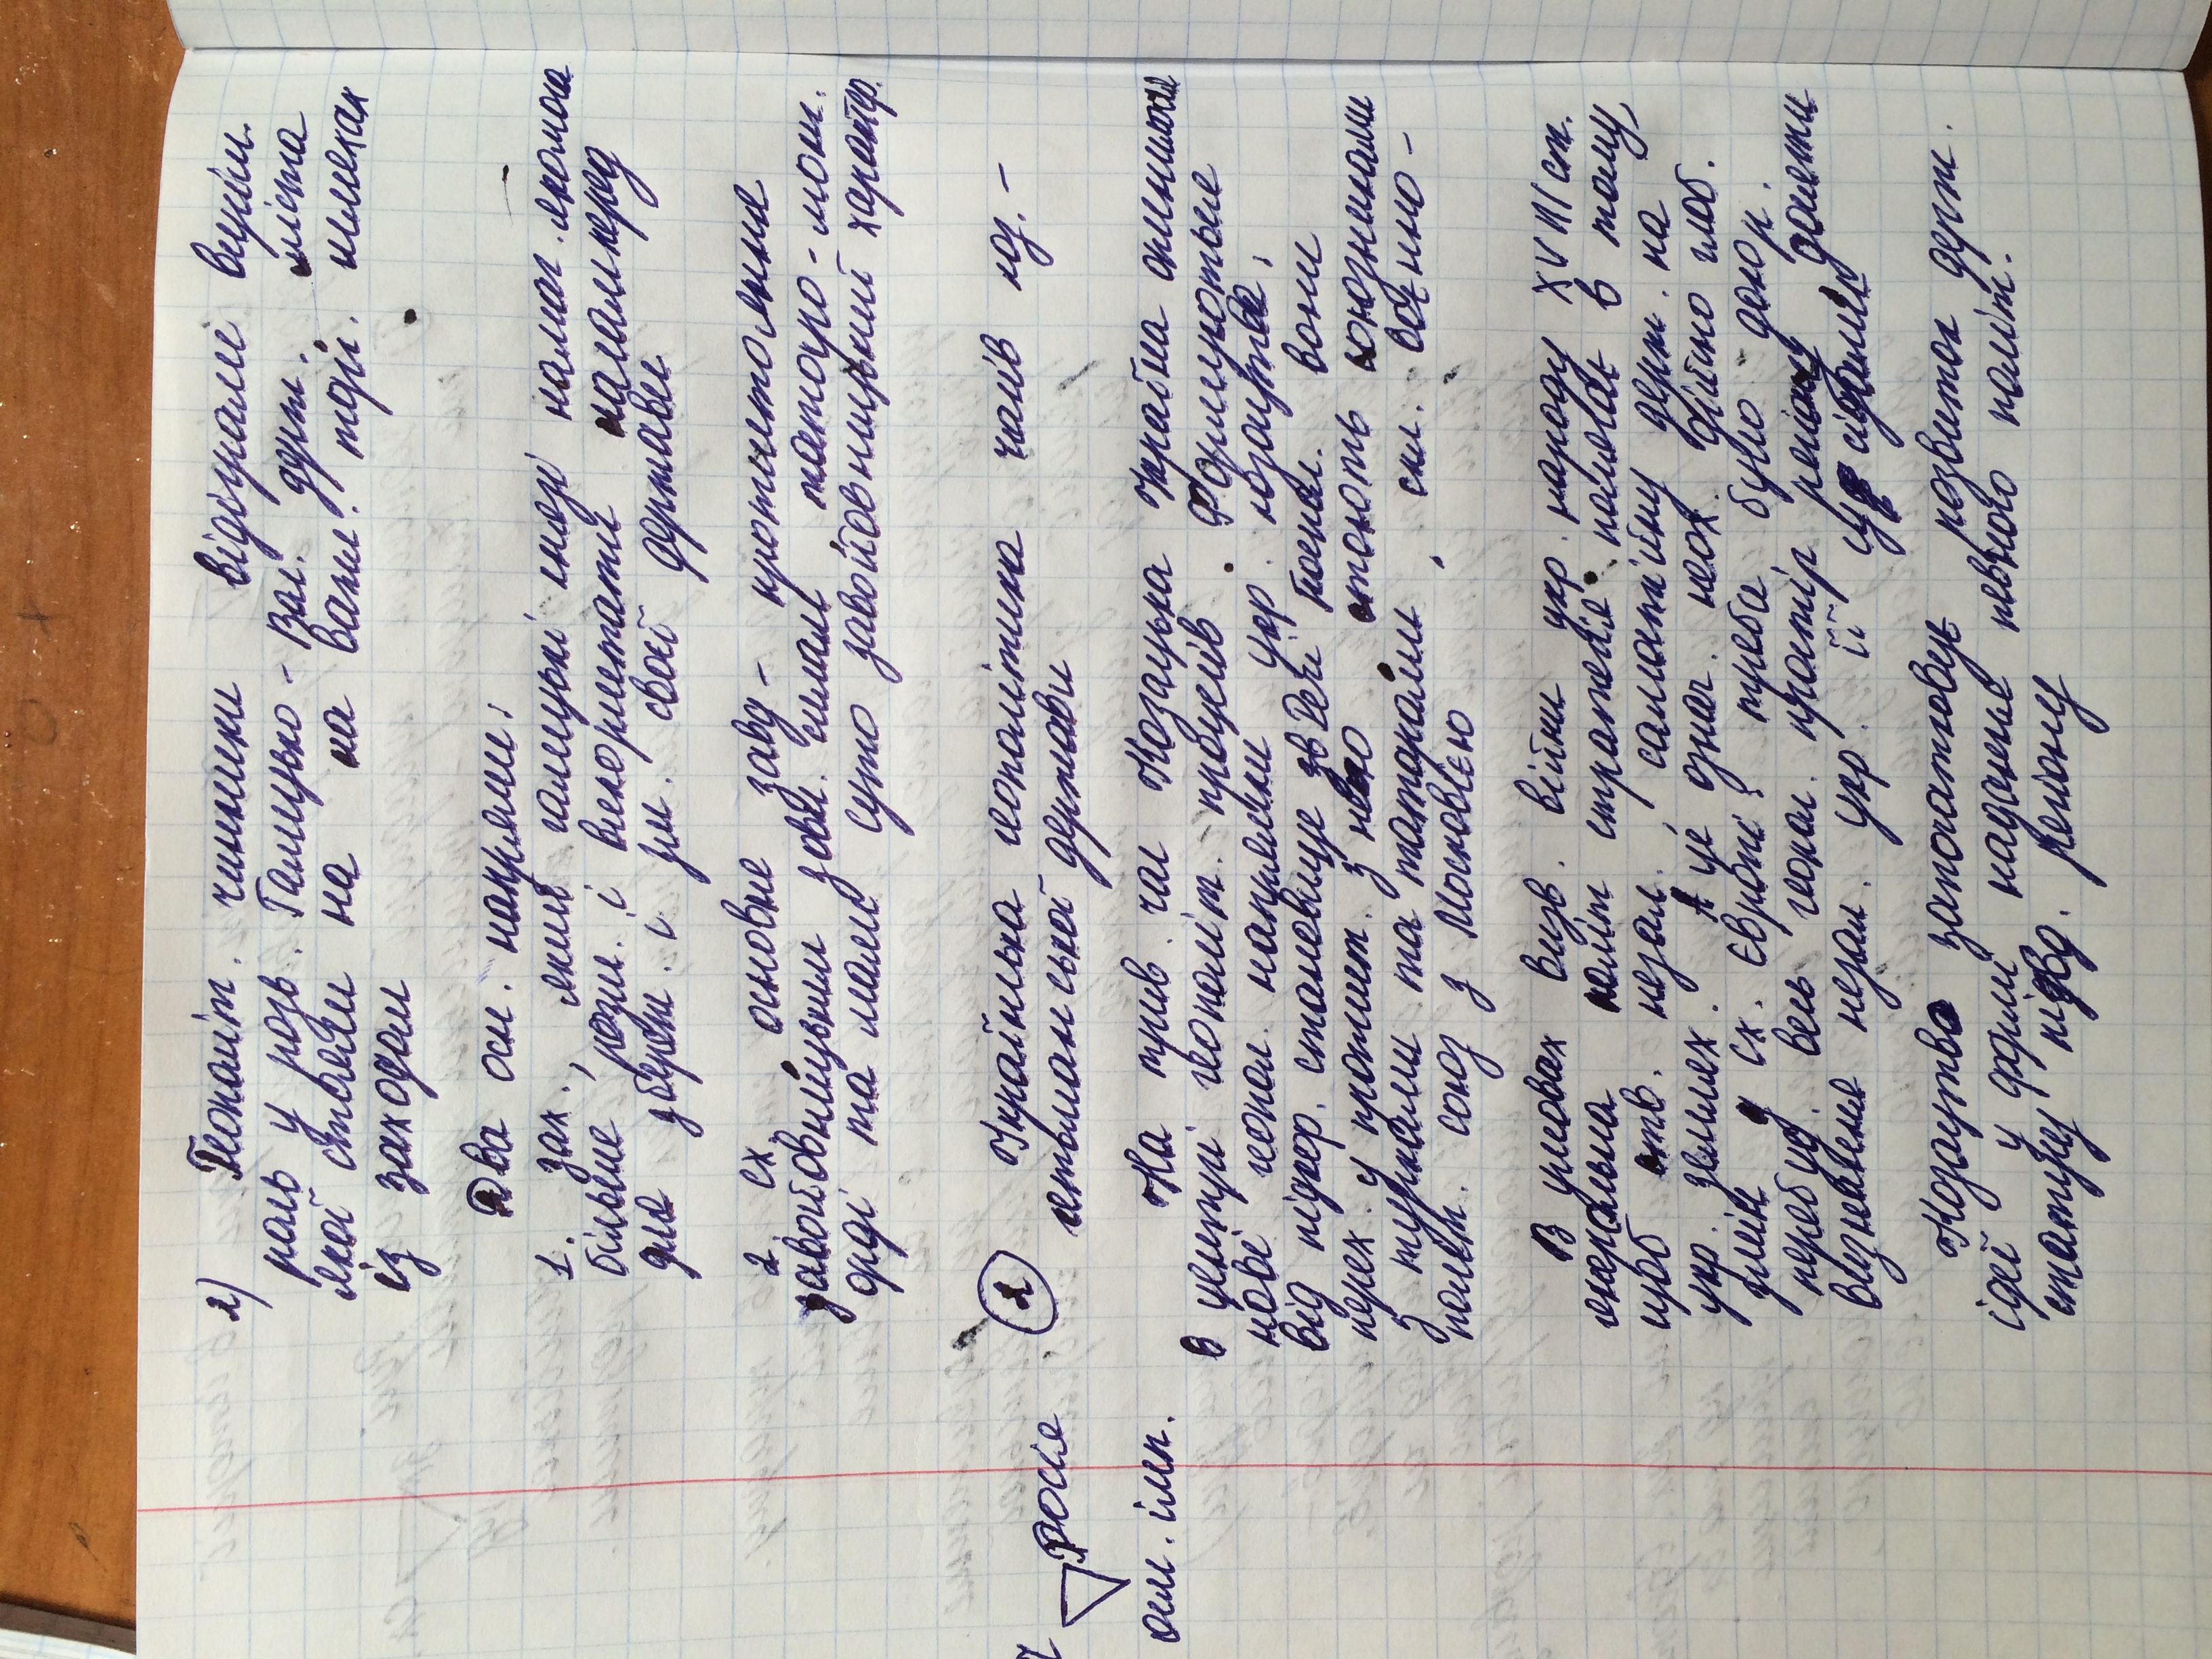 2) Геополіт. чинники відіграли виріш.
роль у розв. Галицько-Вол. держ., міста
якої стояли на на важл. торг. шляхах
із заходом
Два осн. напрями:
1. зах., який галицькі князі намаг. якомога
більше розш. і використати насамперед
для збереж. і зм. своєї держави
2. сх., основне завд - протистояння
завойовницьким зовн. силам, татаро-монг.
орді та мали суто завойовницький характер.
2 Українська геополітика часів коз.-
гетьманської держави
росія
осм. імп.
На трив. час Козацька Україна опинилася
в центрі геополіт. процесів. Формуються
нові геопол. напрямки укр. козацтва:
від підкор. становище зв Речі Поспол. вони
перех. у протист. з нею, стають союзниками
з турками та татарами, скл. воєнно-
політ. союз з Московією
В умовах визв. війни укр. народу XVIII ст.
генеральна політ стратегія полягає в тому,
щоб ств. незал., самостійну держ. на
укр. землях. А це означ. необх. дійсно глоб.
змін у Сх. Європі: треба було докор.
перебуд. весь геопол. простір регіону, досягти
визнання незал. укр. її сусідами
Козацтво започатковує розвиток держ.
ідеї у формі надання певного політ.
статусу підвл. регіону